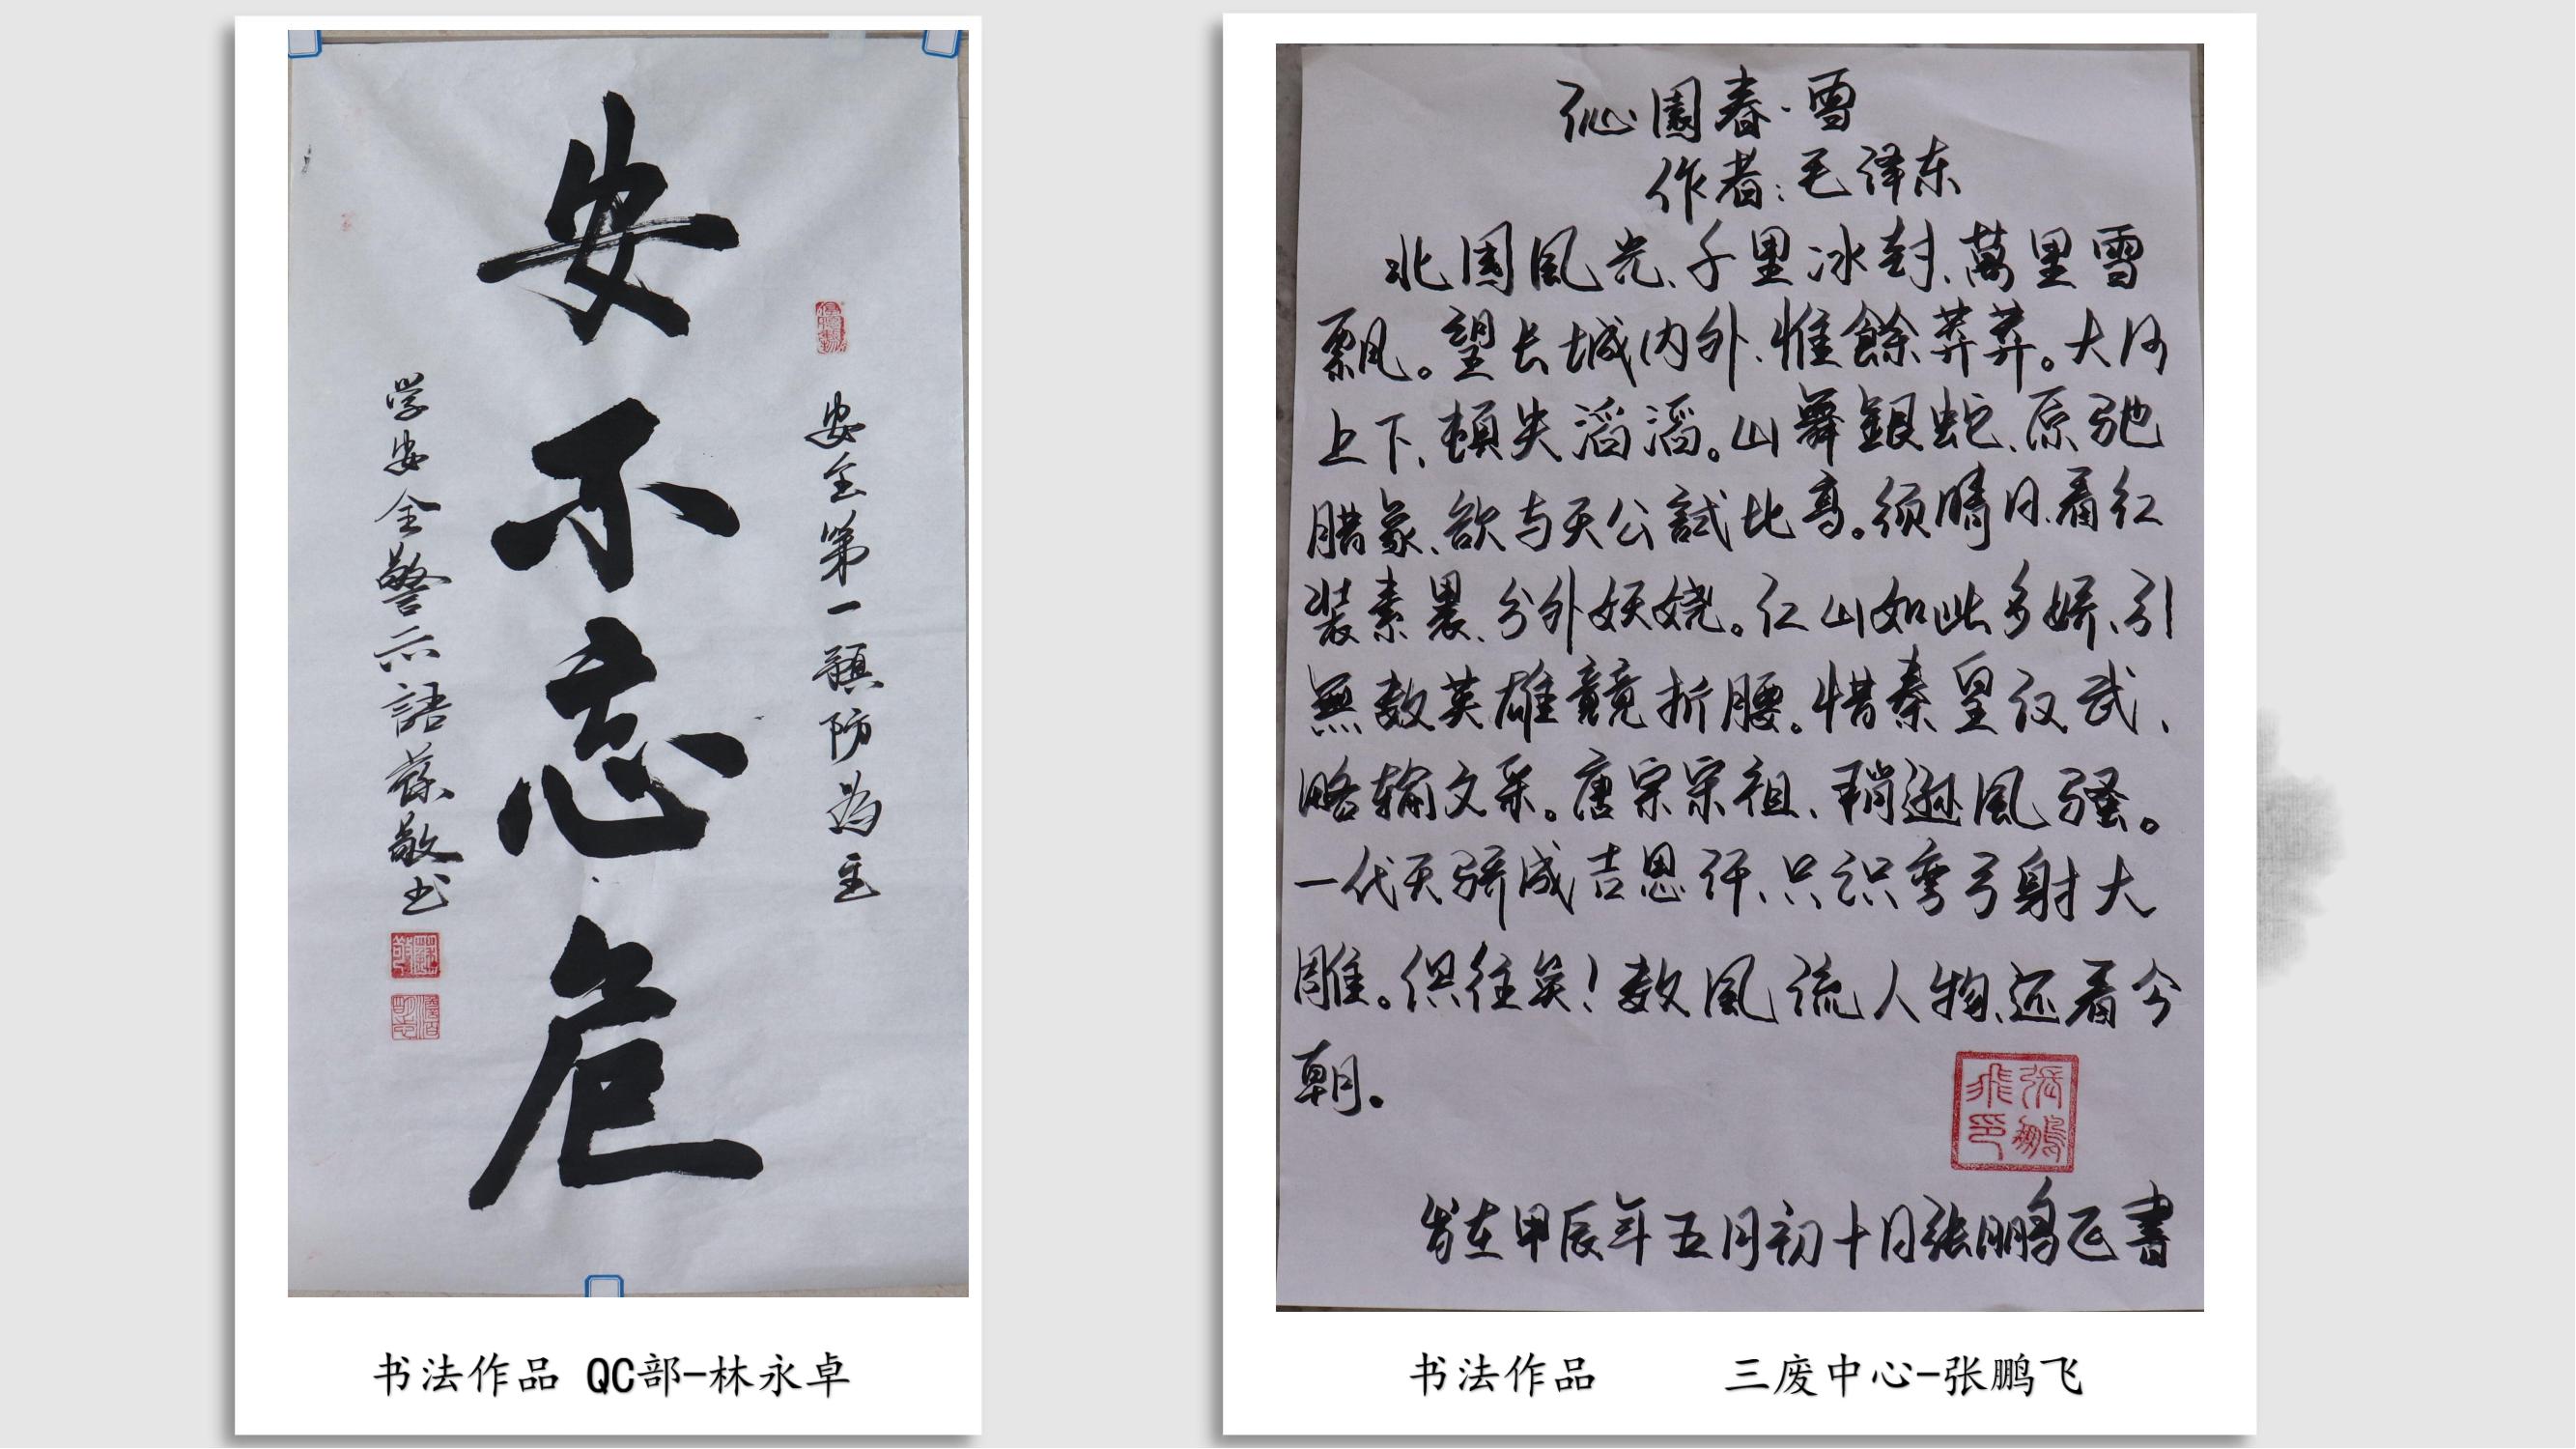 安不忘危
安全第一预防为主
学安全警示語蘇敬书
书法作品 QC部-林永卓
沁園春·雪
作者：毛泽东
北国風光、千里冰封、萬里雪
飘。望长城内外、惟餘莽莽。大河
上下、頓失滔滔。山舞銀蛇、原驰
腊象、欲与天公試比高。须晴日、看红
装素裹、分外妖娆。江山如此多娇、引
無数英雄競折腰。惜秦皇汉武、
略输文采。唐宗宋祖、稍逊風骚。
一代天骄成吉思汗、只识弯弓射大
雕。俱往矣！数風流人物、还看今
朝。
張鵬飛印
岁在甲辰年五月初十日张鹏飞書
书法作品 三废中心-张鹏飞